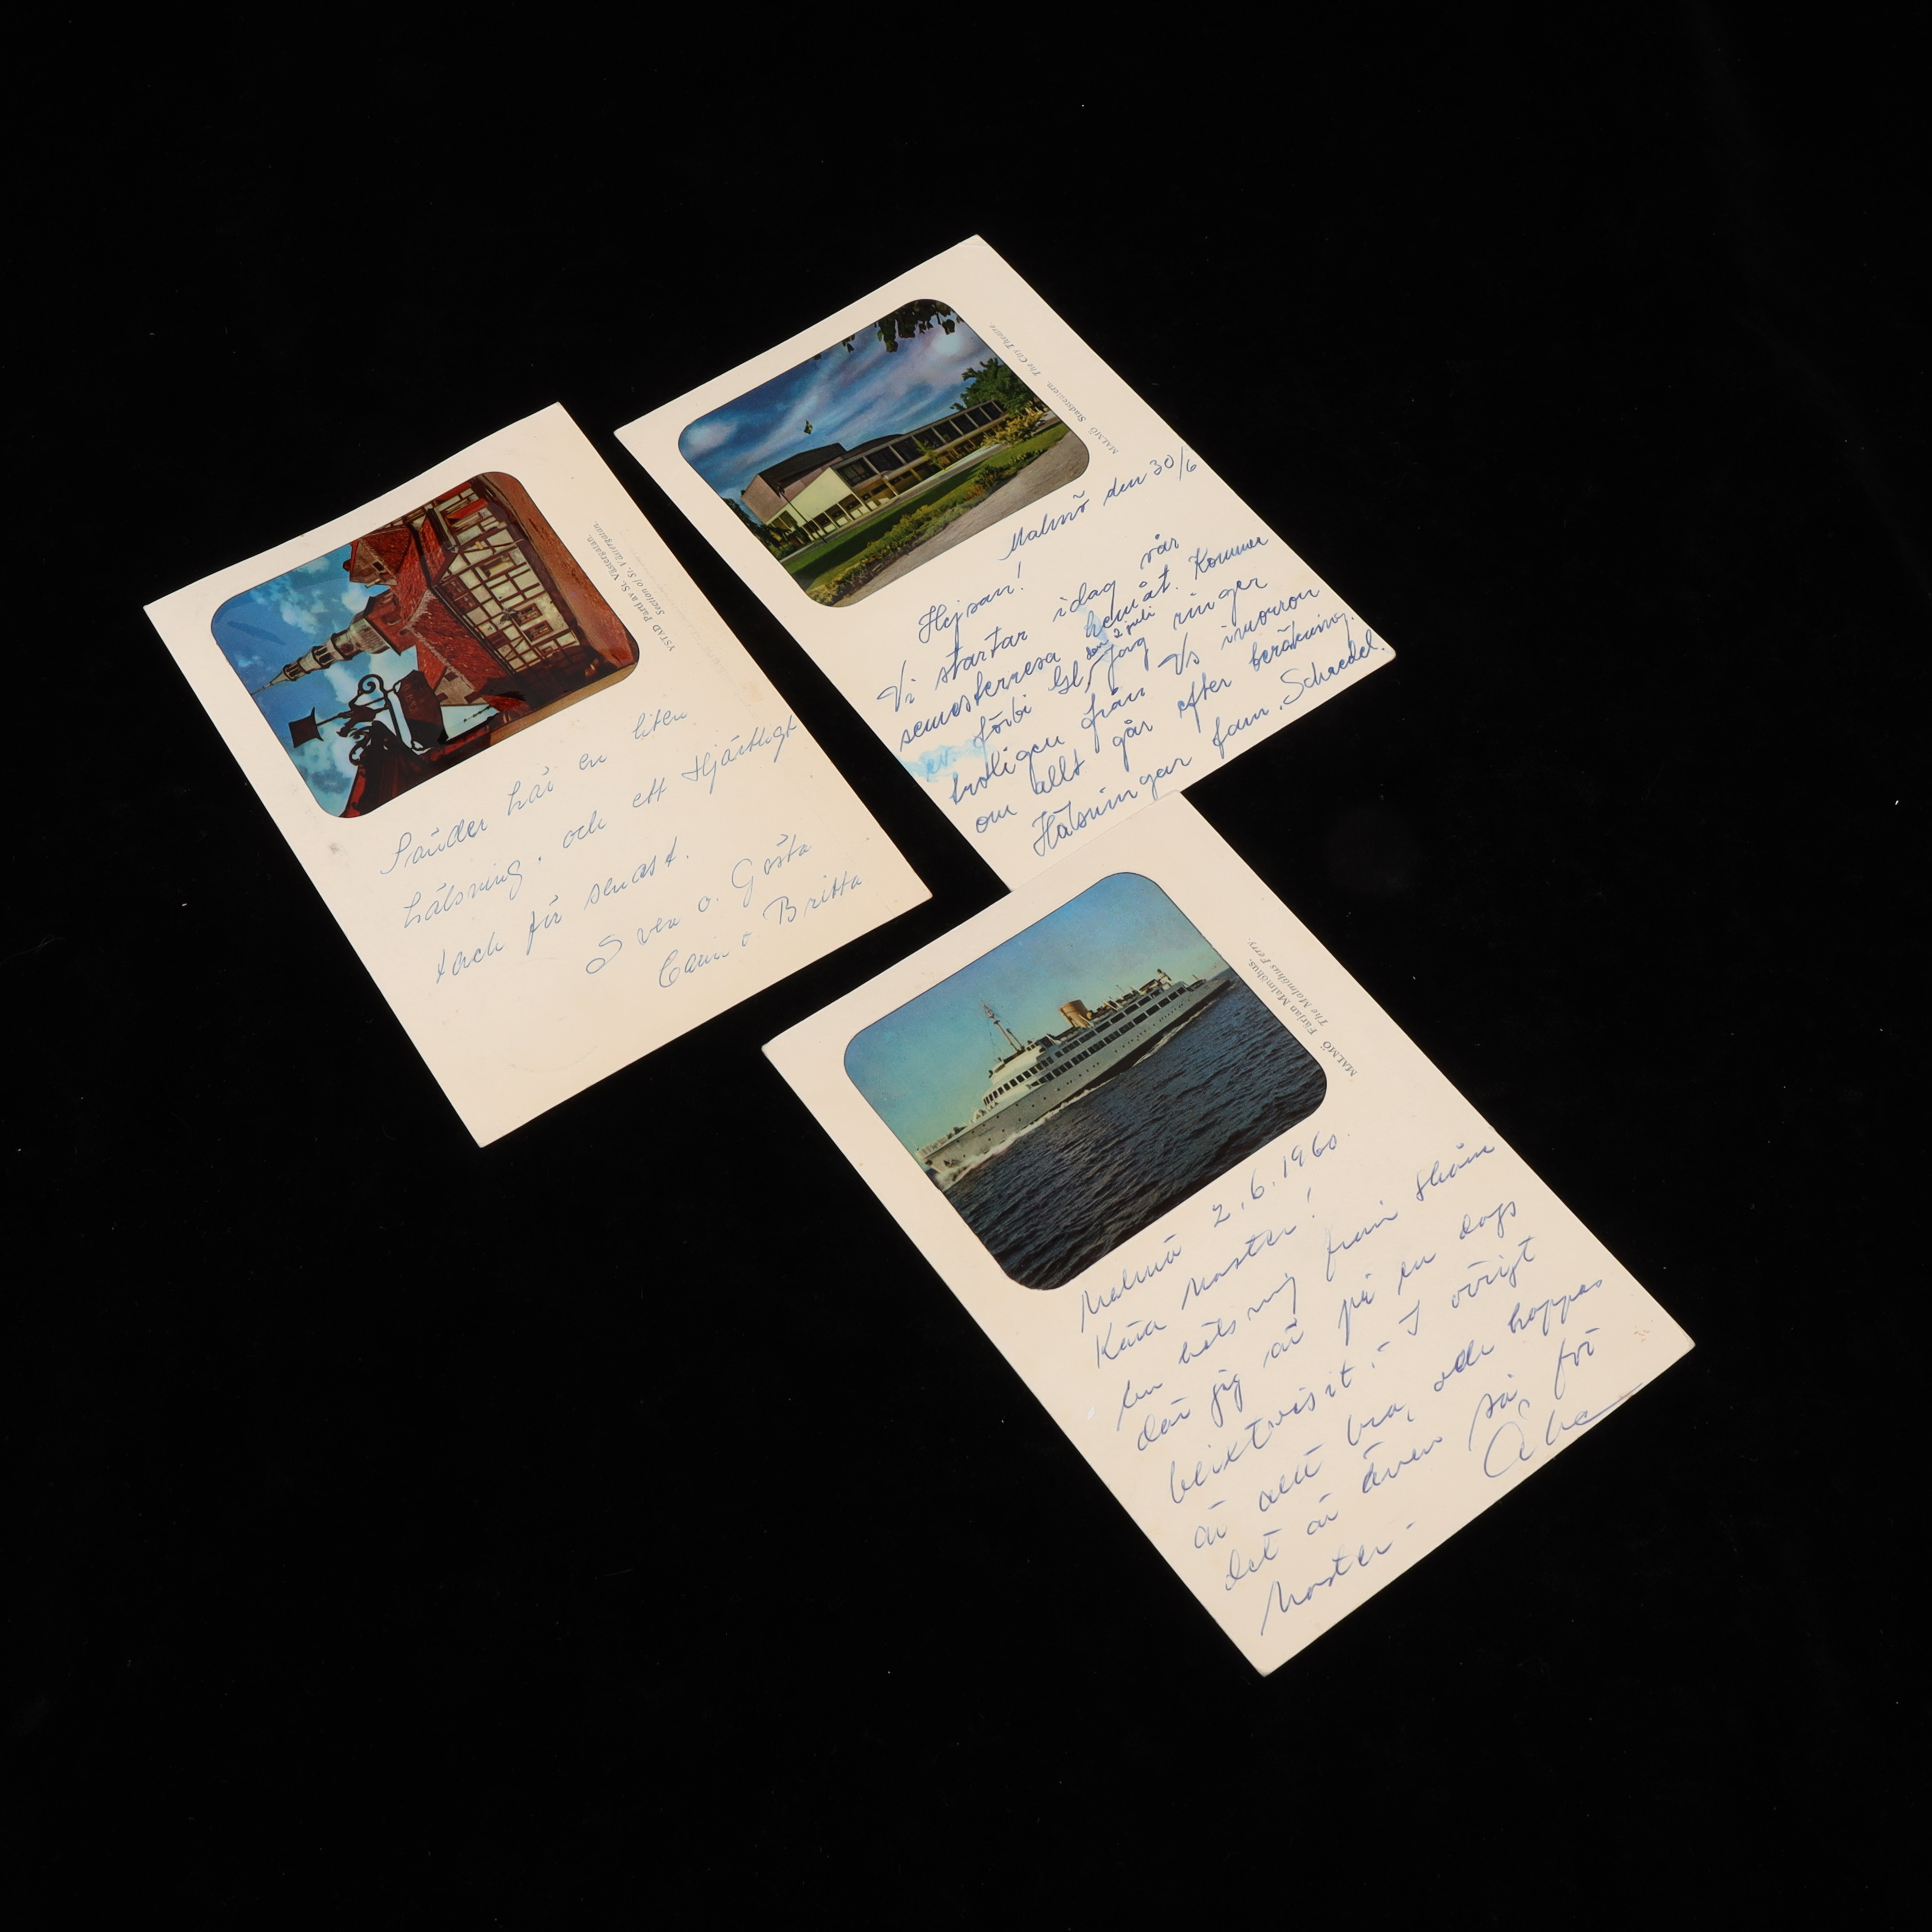 YSTAD Parti av St. Västergatan.
Section of St. Västergatan.
Sänder här en liten
hälsning, och ett Hjärtligt
tack för senast.
Sven o. Gösta
o. Britta
MALMÖ Stadsteatern. The City Theatre
Malmö den 30/6
Hejsan!
Vi startar idag vår
semesterresa hemåt. Kommer
ev. förbi Gl, den 2 juli Jag ringer
troligen från Vs imorron
om allt går efter beräkning.
Hälsningar fam. Schaedel.
MALMÖ Färjan Malmöhus.
The Malmöhus Ferry.
Malmö 2.6.1960.
Kära Moster!
En hälsning från Skåne
där jag är på en dags
blixtvisit. I övrigt
är allt bra, och hoppas
det är även så för
Moster-
Åke